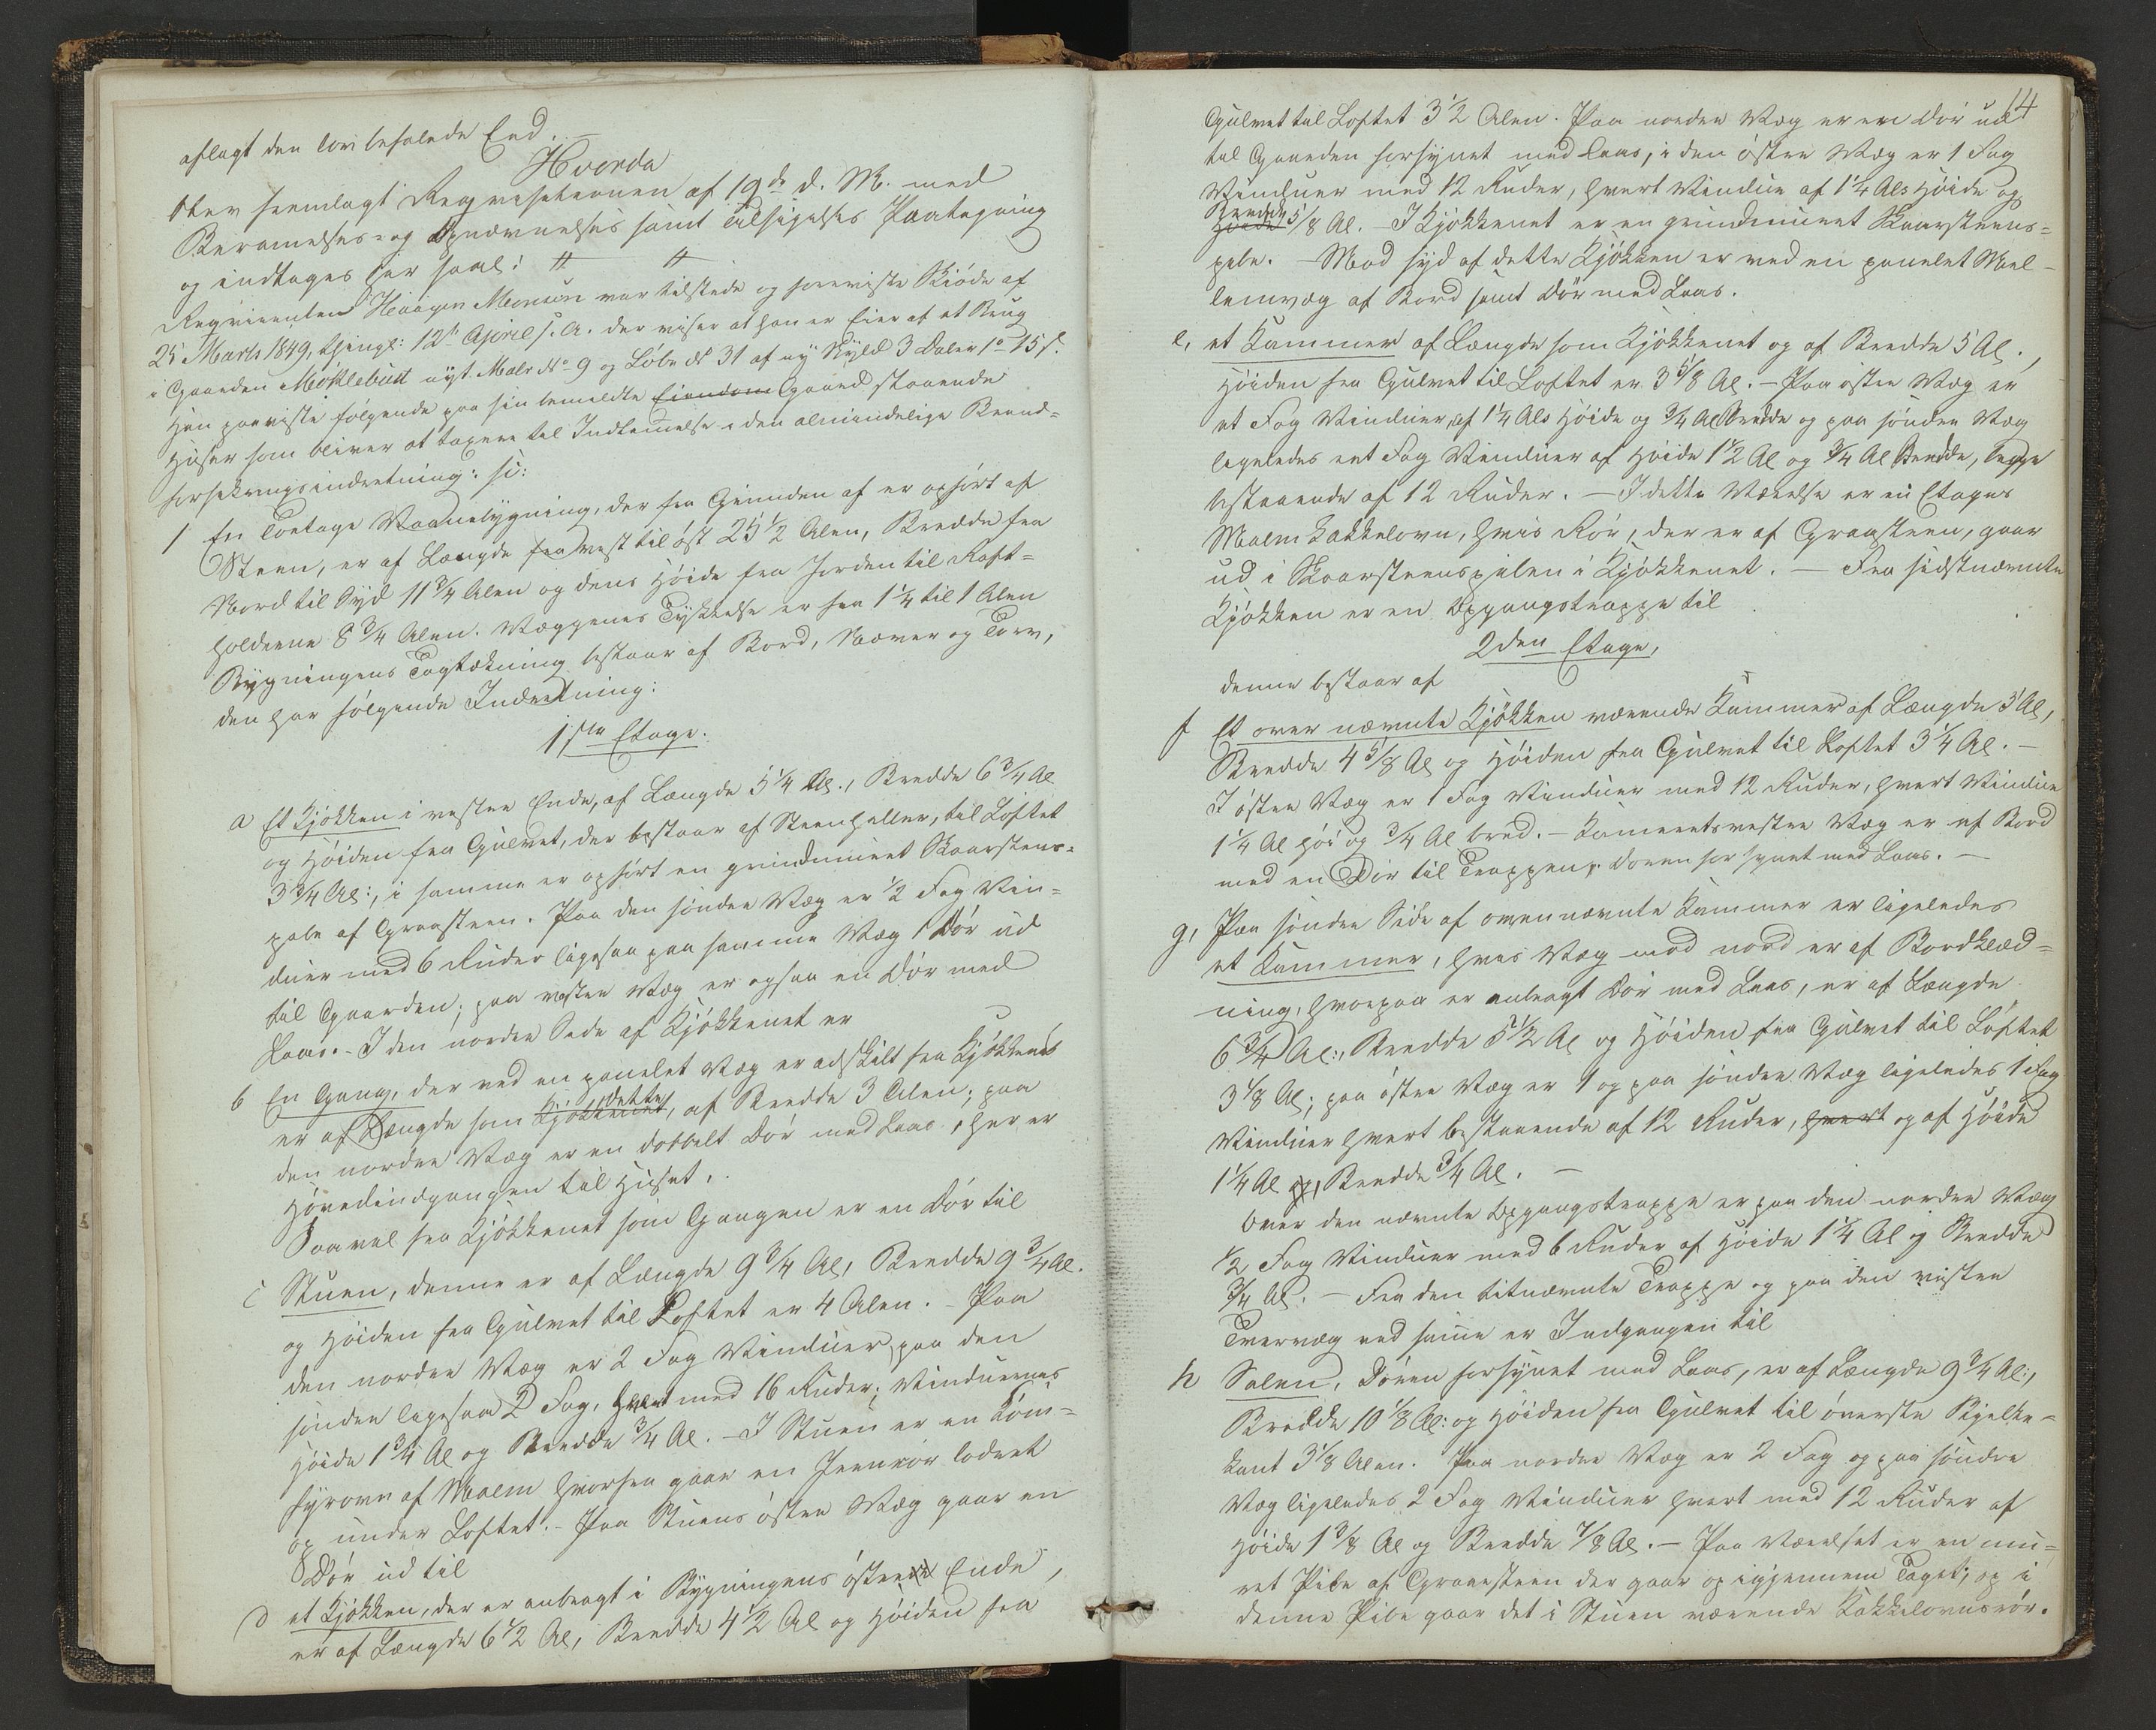 aflagt den lovbefalede Eed. —
Hvorda
blev fremlagt Reqvisitionen af 19de d. M. med
Berammelses- og Opnævnelses samt Tilsigelses Paategning
og indtages her saal: # #
Reqvirenten Haagen Monsen var tilstede og foreviste Skiøde af
25 Marts 1849, thingl: 12te April s. A. der viser at han er Eier af et Brug
i Gaarden Møklebust nyt Matr No 9 og Løbe No 31 af ny Skyld 3 Daler 1 o 15 s.
Han paaviste følgende paa sin bemeldte Eiendom Gaard staaende
Huser som bliver at taxere til Indlemmelse i den almindelige Brand-
forsikringsindretning: si:
1 En Toetage Vaanebygning, der fra Grunden af er opført af
Steen, er af Længde fra vest til øst 25 1/2 Alen, Bredde fra
Nord til Syd 11 3/4 Alen og dens Høide fra Jorden til Raft-
holderne 8 3/4 Alen. Væggenes Tykkelse er fra 1 1/4 til 1 Alen
Bygningens Tagtækning bestaar af Bord, Næver og Torv,
den har følgende Indretning:
1ste Etage.
a Et Kjøkken i vestre Ende, af Længde 5 1/4 Al., Bredde 6 3/4 Al
og Høiden fra Gulvet, der bestaar af Steenheller, til Loftet
3 3/4 Al:, i samme er opført en grundmuret Skaarsteens-
pibe af Graasteen. Paa den søndre Væg er 1/2 Fag Vin-
duer med 6 Ruder ligesaa paa samme Væg 1 Dør ud
til Gaarden; paa vestre Væg er ogsaa en Dør med
Laas. - I den nordre Side af Kjøkkenet er
b En Gang, der ved en panelet Væg er adskilt fra Kjøkkenet
er af Længde som Kjøkkenet dette, af Bredde 3 Alen; paa
den nordre Væg er en dobbelt Dør med Laas, her er
Hovedindgangen til Huset.
Saavel fra Kjøkkenet som Gangen er en Dør til
c Stuen, denne er af Længde 9 3/4 Al, Bredde 9 3/4 Al.
og Høiden fra Gulvet til Loftet er 4 Alen. - Paa
den nordre Væg er 2 Fag Vinduer, paa den
søndre ligesaa 2 Fag, hvert med 16 Ruder; Vinduernes
Høide 1 3/4 Al og Bredde 3/4 Al. - I Stuen er en Kom-
fyrovn af Malm hvorfra gaar en Jernrør lodret
op under Loftet. - Paa Stuens østre Væg gaar en
Dør ud til
d et Kjøkken, der er anbragt i Bygningens østre Ende,
er af Længde 6 1/2 Al, Bredde 4 1/2 Al og Høiden fra
14
Gulvet til Loftet 3 1/2 Alen. Paa nordre Væg er en Dør ud
til Gaarden forsynet med Laas, i den østre Væg er 1 Fag
Vinduer med 12 Ruder, hvert Vindue af 1 1/4 Als Høide og
Høide Bredde 5/8 Al. - I Kjøkkenet er en grundmuret Skaarsteens-
pibe. - Mod syd af dette Kjøkken er ved en panelet Mel-
lemvæg af Bord samt Dør med Laas.
e, et Kammer af Længde som Kjøkkenet og af Bredde 5 Al.,
Høiden fra Gulvet til Loftet er 3 5/8 Al. - Paa østre Væg er
et Fag Vinduer, af 1 1/4 Als Høide og 3/4 Al Bredde og paa søndre Væg
ligeledes eet Fag Vinduer af Høide 1 1/2 Al og 3/4 Al Bredde, begge
bestaaende af 12 Ruder. - I dette Værelse er en Etages
Malm Kakkelovn, hvis Rør, der er af Graasteen, gaar
ud i Skaarsteenspiben i Kjøkkenet. - Fra sidstnævnte
Kjøkken er en Opgangstrappe til
2den Etage,
denne bestaar af
f Et over nævnte Kjøkken værende Kammer af Længde 5 Al,
Bredde 4 5/8 Al og Høiden fra Gulvet til Loftet 3 1/4 Al. -
I østre Væg er 1 Fag Vinduer med 12 Ruder, hvert Vindue
1 1/4 Al høi og 3/4 Al bred. - Kammerets vestre Væg er af Bord
med en Dør til Trappen, Døren forsynet med Laas. -
g, Paa søndre Side af ovennævnte Kammer er ligeledes
et Kammer, hvis Væg mod nord er af Bordklæd-
ning, hvorpaa er anbragt Dør med Laas, er af Længde
6 3/4 Al:, Bredde 5 1/2 Al og Høiden fra Gulvet til Loftet
3 1/8 Al; paa østre Væg er 1 og paa søndre Væg ligeledes 1 Fag
Vinduer hvert bestaaende af 12 Ruder, hvert og af Høide
1 1/4 Al og Bredde 3/4 Al. -
Over den nævnte Opgangstrappe er paa den nordre Væg
1/2 Fag Vinduer med 6 Ruder af Høide 1 1/4 Al og Bredde
3/4 Al. - Fra den titnævnte Trappe og paa den vestre
Tværvæg ved samme er Indgangen til
h Salen, Døren forsynet med Laas, er af Længde 9 3/4 Al:,
Bredde 10 1/8 Al: og Høiden fra Gulvet til øverste Bjelke-
kant 3 1/8 Alen. Paa nordre Væg er 2 Fag og paa søndre
Væg ligeledes 2 Fag Vinduer hvert med 12 Ruder af
Høide 1 3/8 Al og Bredde 7/8 Al. - Paa Værelset er en mu-
ret Pibe af Graasteen der gaar op igjennem Taget; og i
denne Pibe gaar det i Stuen værende Kakkelovnsrør.